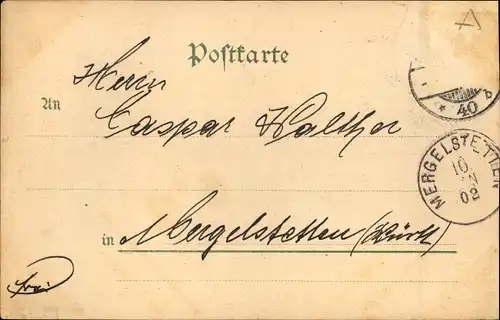 Postkarte
Herrn
An
Caspar Walther
in Mergelstetten (Württ)
frei
40 b
MERGELSTETTEN
10
02